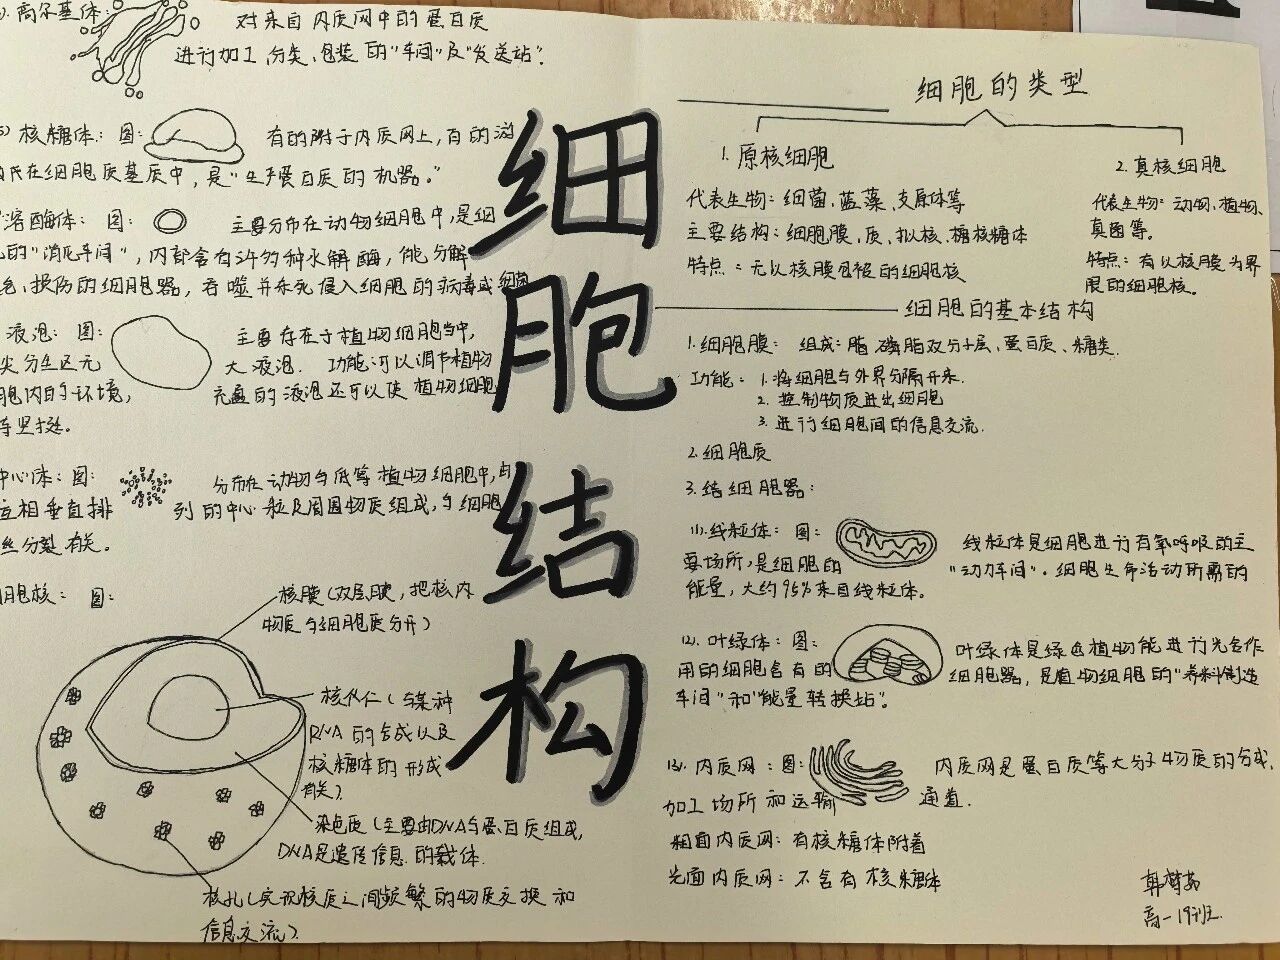 高尔基体:
对来自内质网中的蛋白质
进行加工,分类、包装的"车间"及"发送站".
核糖体: 图:
有的附于内质网上,有的游
在细胞质基质中,是"生产蛋白质的机器."
溶酶体: 图:
主要分布在动物细胞中,是细
的"消化车间",内部含有许多种水解酶,能分解
损伤的细胞器,吞噬并杀死侵入细胞的病毒或细菌
液泡: 图:
主要存在于植物细胞当中,
大液泡. 功能:可以调节植物
胞内的环境,
充盈的液泡还可以使植物细胞
坚挺。
中心体: 图:
分布在动物与低等植物细胞中,由
互相垂直排
列的中心粒及周围物质组成,与细胞
丝分裂有关。
胞核: 图:
核膜(双层膜,把核内
物质与细胞质分开)
核仁(与某种
RNA的合成以及
核糖体的形成
有关).
染色质(主要由DNA与蛋白质组成,
DNA是遗传信息的载体.
核孔(实现核质之间频繁的物质交换和
信息交流).
细胞结构
细胞的类型
1. 原核细胞
2. 真核细胞
代表生物: 细菌,蓝藻,支原体等
主要结构: 细胞膜、质、拟核、糖核糖体
特点: 无以核膜包被的细胞核
代表生物: 动物,植物,
真菌等。
特点: 有以核膜为界
限的细胞核。
细胞的基本结构
1.细胞膜: 组成: 脂 磷脂双分子层、蛋白质、糖类.
功能: 1.将细胞与外界分隔开来.
2. 控制物质进出细胞
3. 进行细胞间的信息交流.
2.细胞质
3.结细胞器:
(1).线粒体: 图:
线粒体是细胞进行有氧呼吸的主
要场所,是细胞的
"动力车间". 细胞生命活动所需的
能量,大约95%来自线粒体.
(2). 叶绿体: 图:
叶绿体是绿色植物能进行光合作
用的细胞含有的
细胞器,是植物细胞的"养料制造
车间"和"能量转换站"。
(3). 内质网: 图:
内质网是蛋白质等大分子物质的合成,
加工场所和运输
通道.
粗面内质网: 有核糖体附着
光面内质网: 不含有核糖体
高一19班.